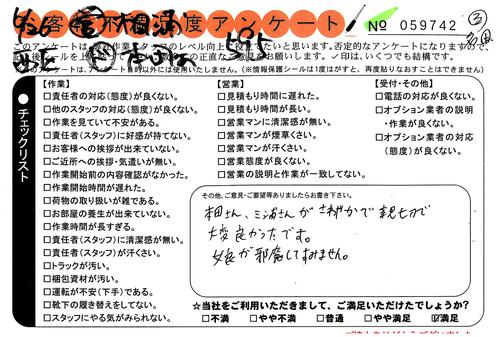 お客様不満足度アンケート
№ 059742
③
このアンケートは、
✓印は、いくつでも結構です。
(※情報保護シールは1度はがすと、再度貼りなおすことはできません)
チェックリスト
【作業】
□責任者の対応(態度)が良くない。
□他のスタッフの対応(態度)が良くない。
□作業を見ていて不安がある。
□責任者(スタッフ)に好感が持てない。
□お客様への挨拶が出来ていない。
□ご近所への挨拶・気遣いが無い。
□作業開始前の内容確認がなかった。
□作業開始時間が遅れた。
□荷物の取り扱いが雑である。
□お部屋の養生が出来ていない。
□作業時間が長すぎる。
□責任者(スタッフ)に清潔感が無い。
□責任者(スタッフ)が汗くさい。
□トラックが汚い。
□梱包資材が汚い。
□運転が不安(下手)である。
□靴下の履き替えをしてない。
□スタッフにやる気がみられない。
【営業】
□見積もり時間に遅れた。
□見積もり時間が長い。
□営業マンに清潔感が無い。
□営業マンが煙草くさい。
□営業マンが汗くさい。
□営業態度が良くない。
□営業の説明と作業が一致してない。
【受付・その他】
□電話の対応が良くない。
□オプション業者の説明
・作業が良くない。
□オプション業者の対応
(態度)が良くない。
その他、ご意見・ご要望等ありましたらお書き下さい。
相田さん、三浦さんがさわやかで親切で
大変良かったです。
娘が邪魔してすみません。
☆当社をご利用いただきまして、ご満足いただけたでしょうか?
□不満 □やや不満 □普通 □やや満足 ☑満足